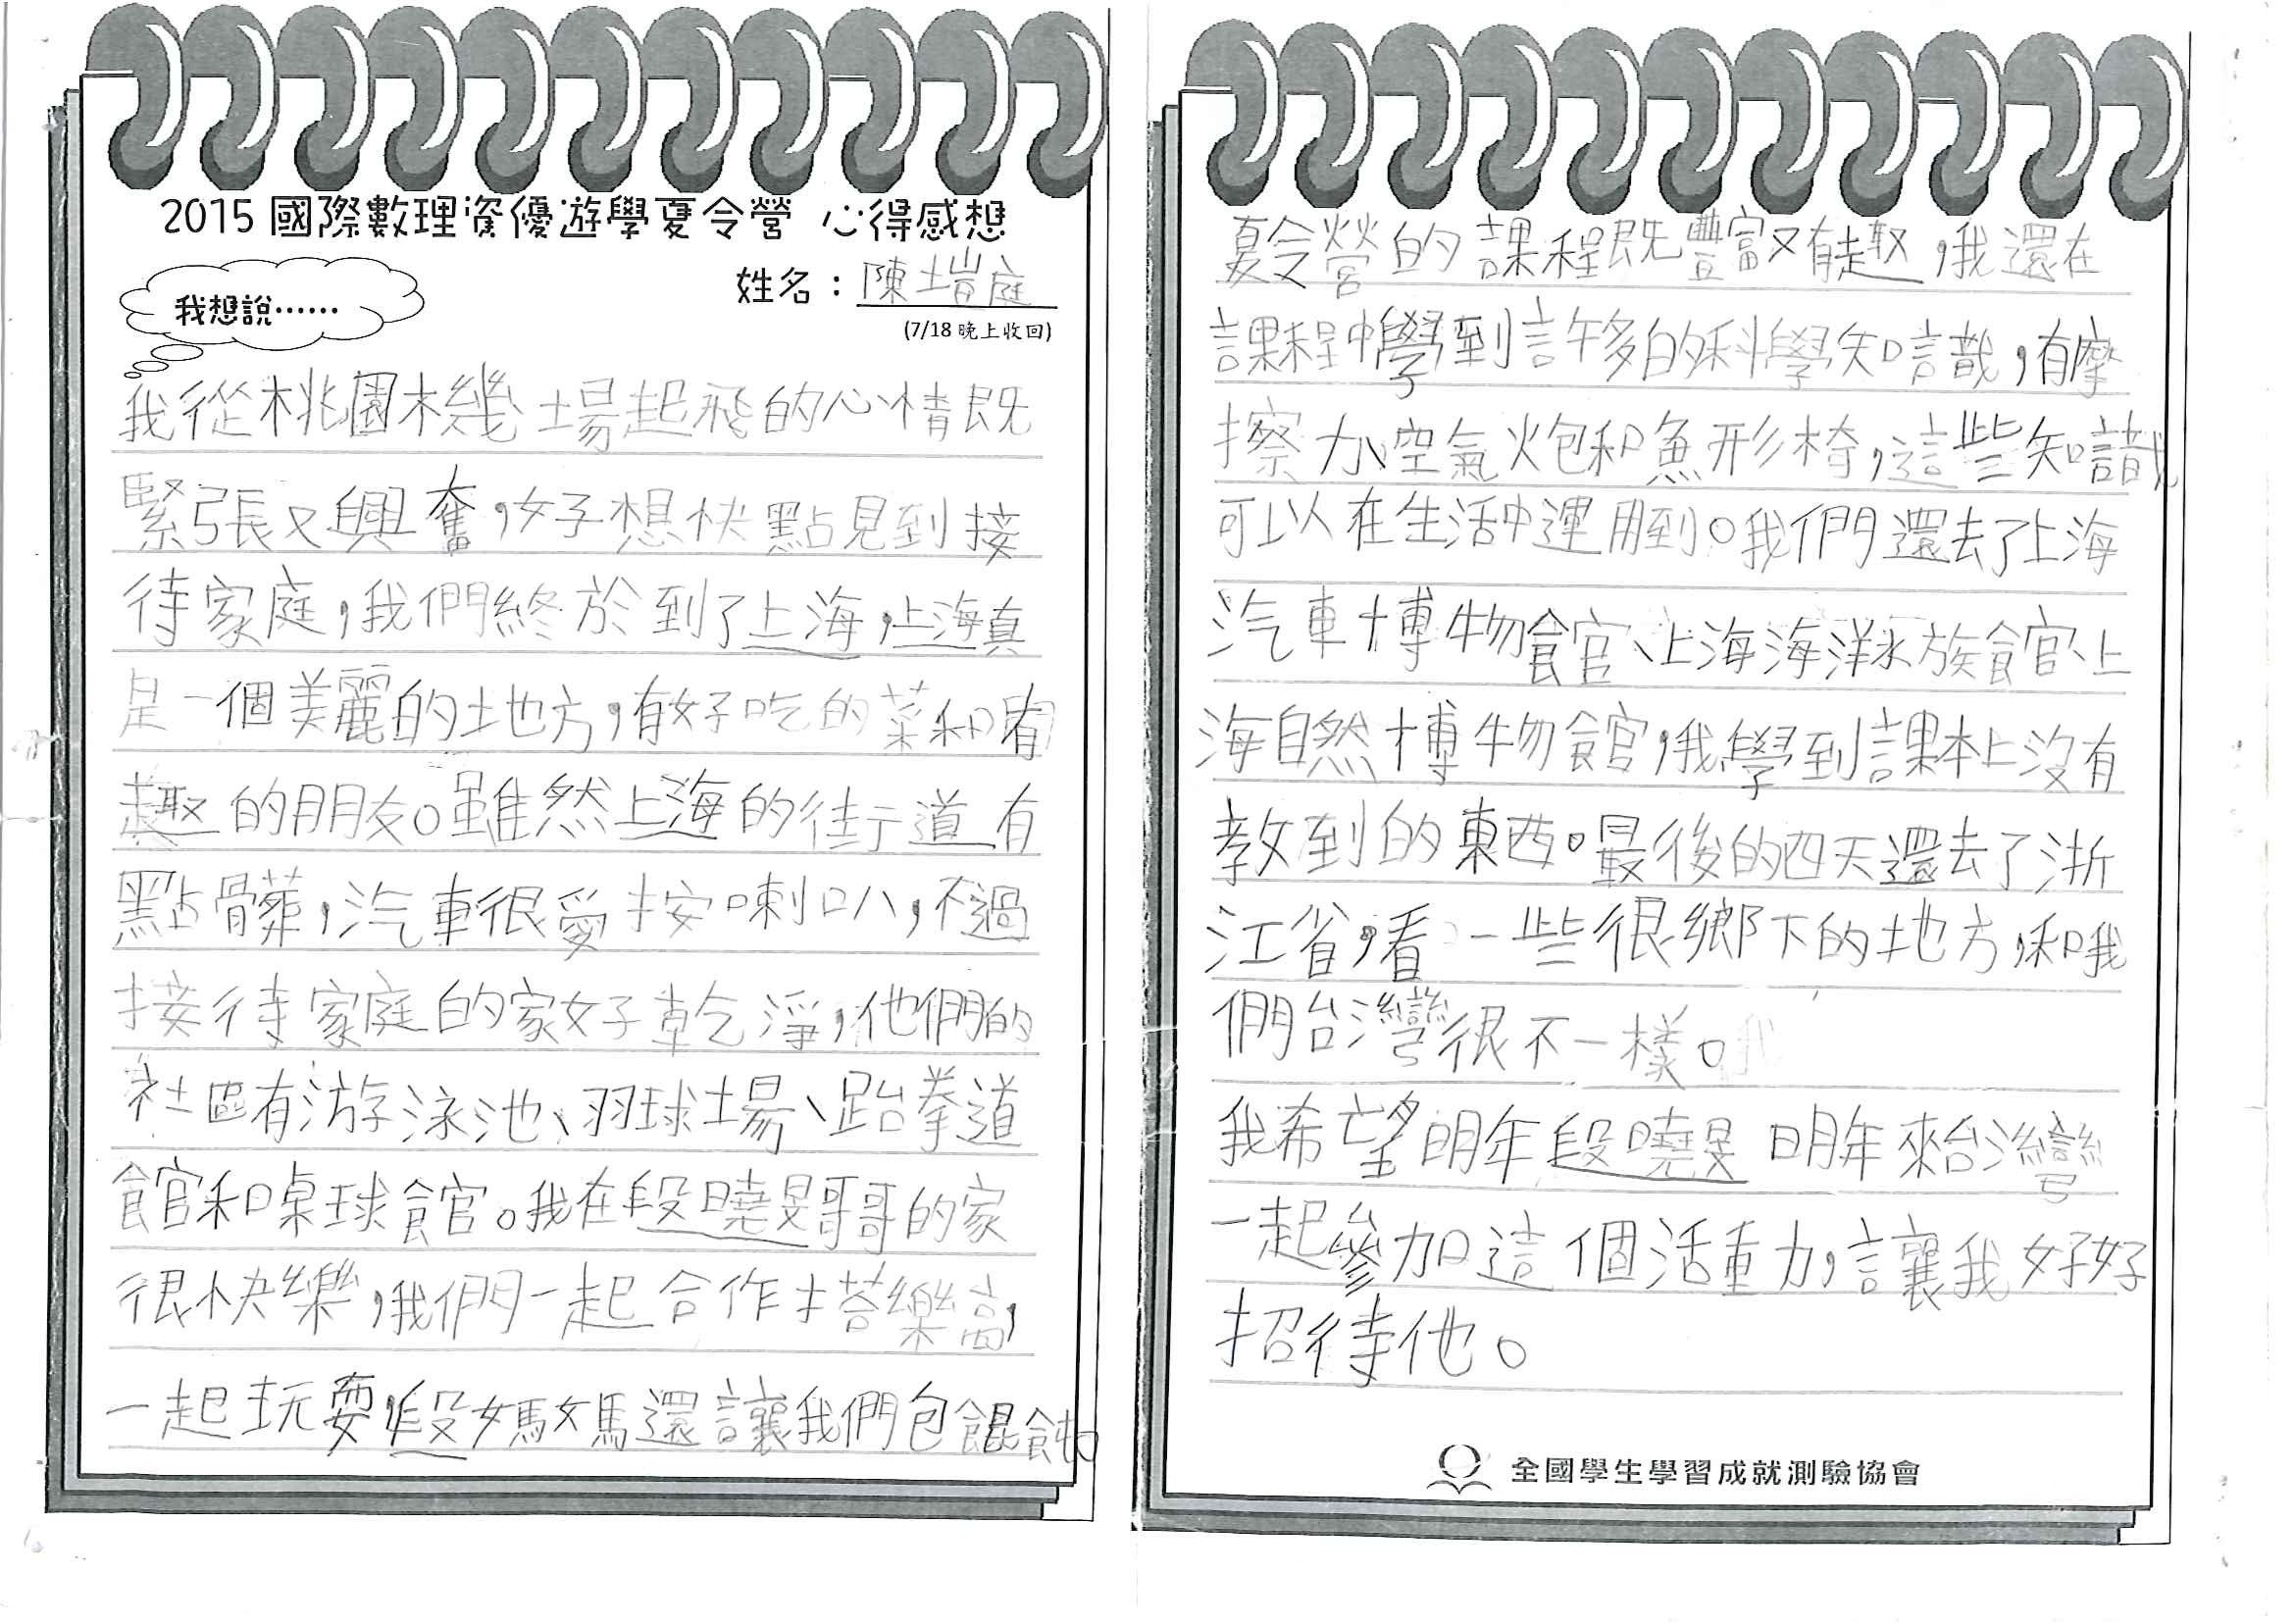 2015 國際數理資優遊學夏令營 心得感想
姓名：陳塏庭
我想說……
(7/18 晚上收回)
我從桃園機場起飛的心情既
緊張又興奮，好想快點見到接
待家庭，我們終於到了上海，上海真
是一個美麗的地方，有好吃的菜和有
趣的朋友。雖然上海的街道有
點髒，汽車很愛按喇叭，不過
接待家庭的家好乾淨，他們的
社區有游泳池、羽球場、跆拳道
館和桌球館。我在段曉旻哥哥的家
很快樂，我們一起合作搭樂高，
一起玩耍，段媽媽還讓我們包餛飩。
夏令營的課程既豐富又有趣，我還在
課程中學到許多的科學知識，有摩
擦力、空氣炮和魚形椅，這些知識
可以在生活中運用到。我們還去了上海
汽車博物館、上海海洋水族館、上
海自然博物館，我學到課本上沒有
教到的東西。最後的四天還去了浙
江省，看一些很鄉下的地方，和我
們台灣很不一樣。
我希望明年段曉旻明年來台灣
一起參加這個活動，讓我好好
招待他。
全國學生學習成就測驗協會